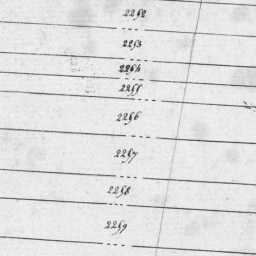 2252
2253
2254
2255
2256
2257
2258
2259